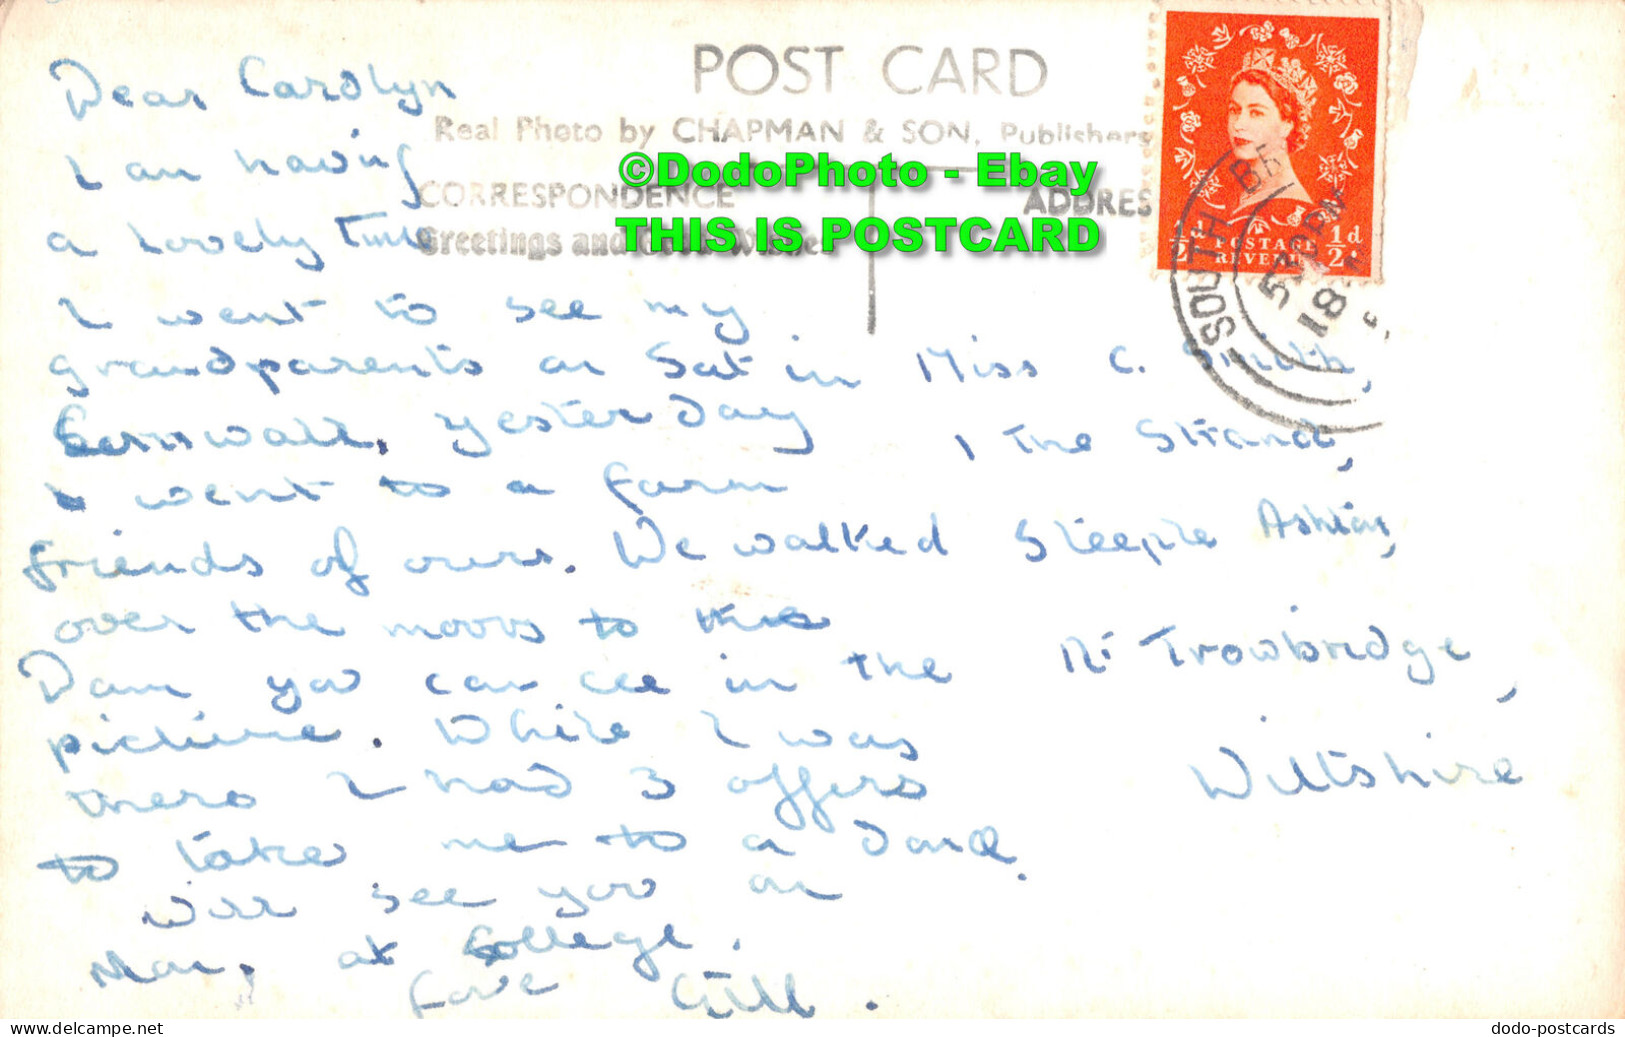 POST CARD
Real Photo by CHAPMAN & SON, Publishers
CORRESPONDENCE
ADDRES
Greetings and
©DodoPhoto - Ebay
THIS IS POSTCARD
½d POSTAGE REVENUE ½d
SOUTH BR
530PM
18
Dear Carolyn
I am having
a lovely time
I went to see my
grandparents on Sat in
Cornwall, yesterday
I went to a farm
friends of ours. We walked
over the moors to this
Dam you can see in the
picture. While I was
there I had 3 offers
to take me to a dance.
Will see you on
Mon, at College.
Love Gill.
Miss C. Smith,
1 The Strand,
Steeple Ashton,
Nr Trowbridge,
Wiltshire
delcampe.net
dodo-postcards